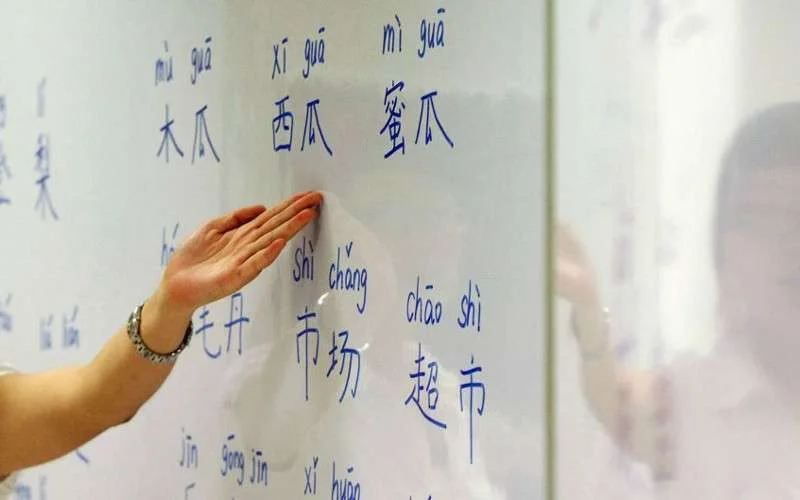 mù guā xī guā mì guā
梨 木瓜 西瓜 蜜瓜
shì chǎng chāo shì
毛丹 市场 超市
jīn gōng jīn xǐ huān